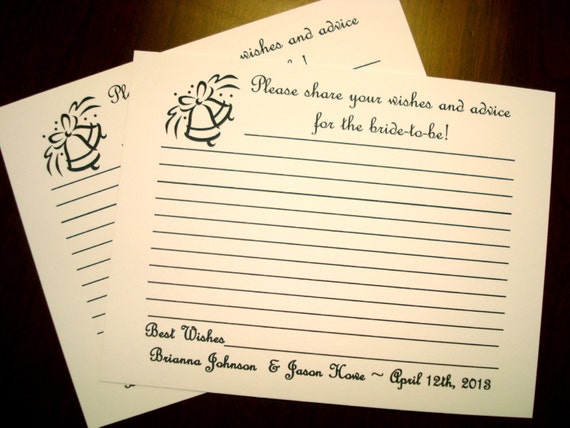 wishes and advice
Please share your wishes and advice
for the bride-to-be!
Best Wishes
Brianna Johnson & Jason Howe ~ April 12th, 2013